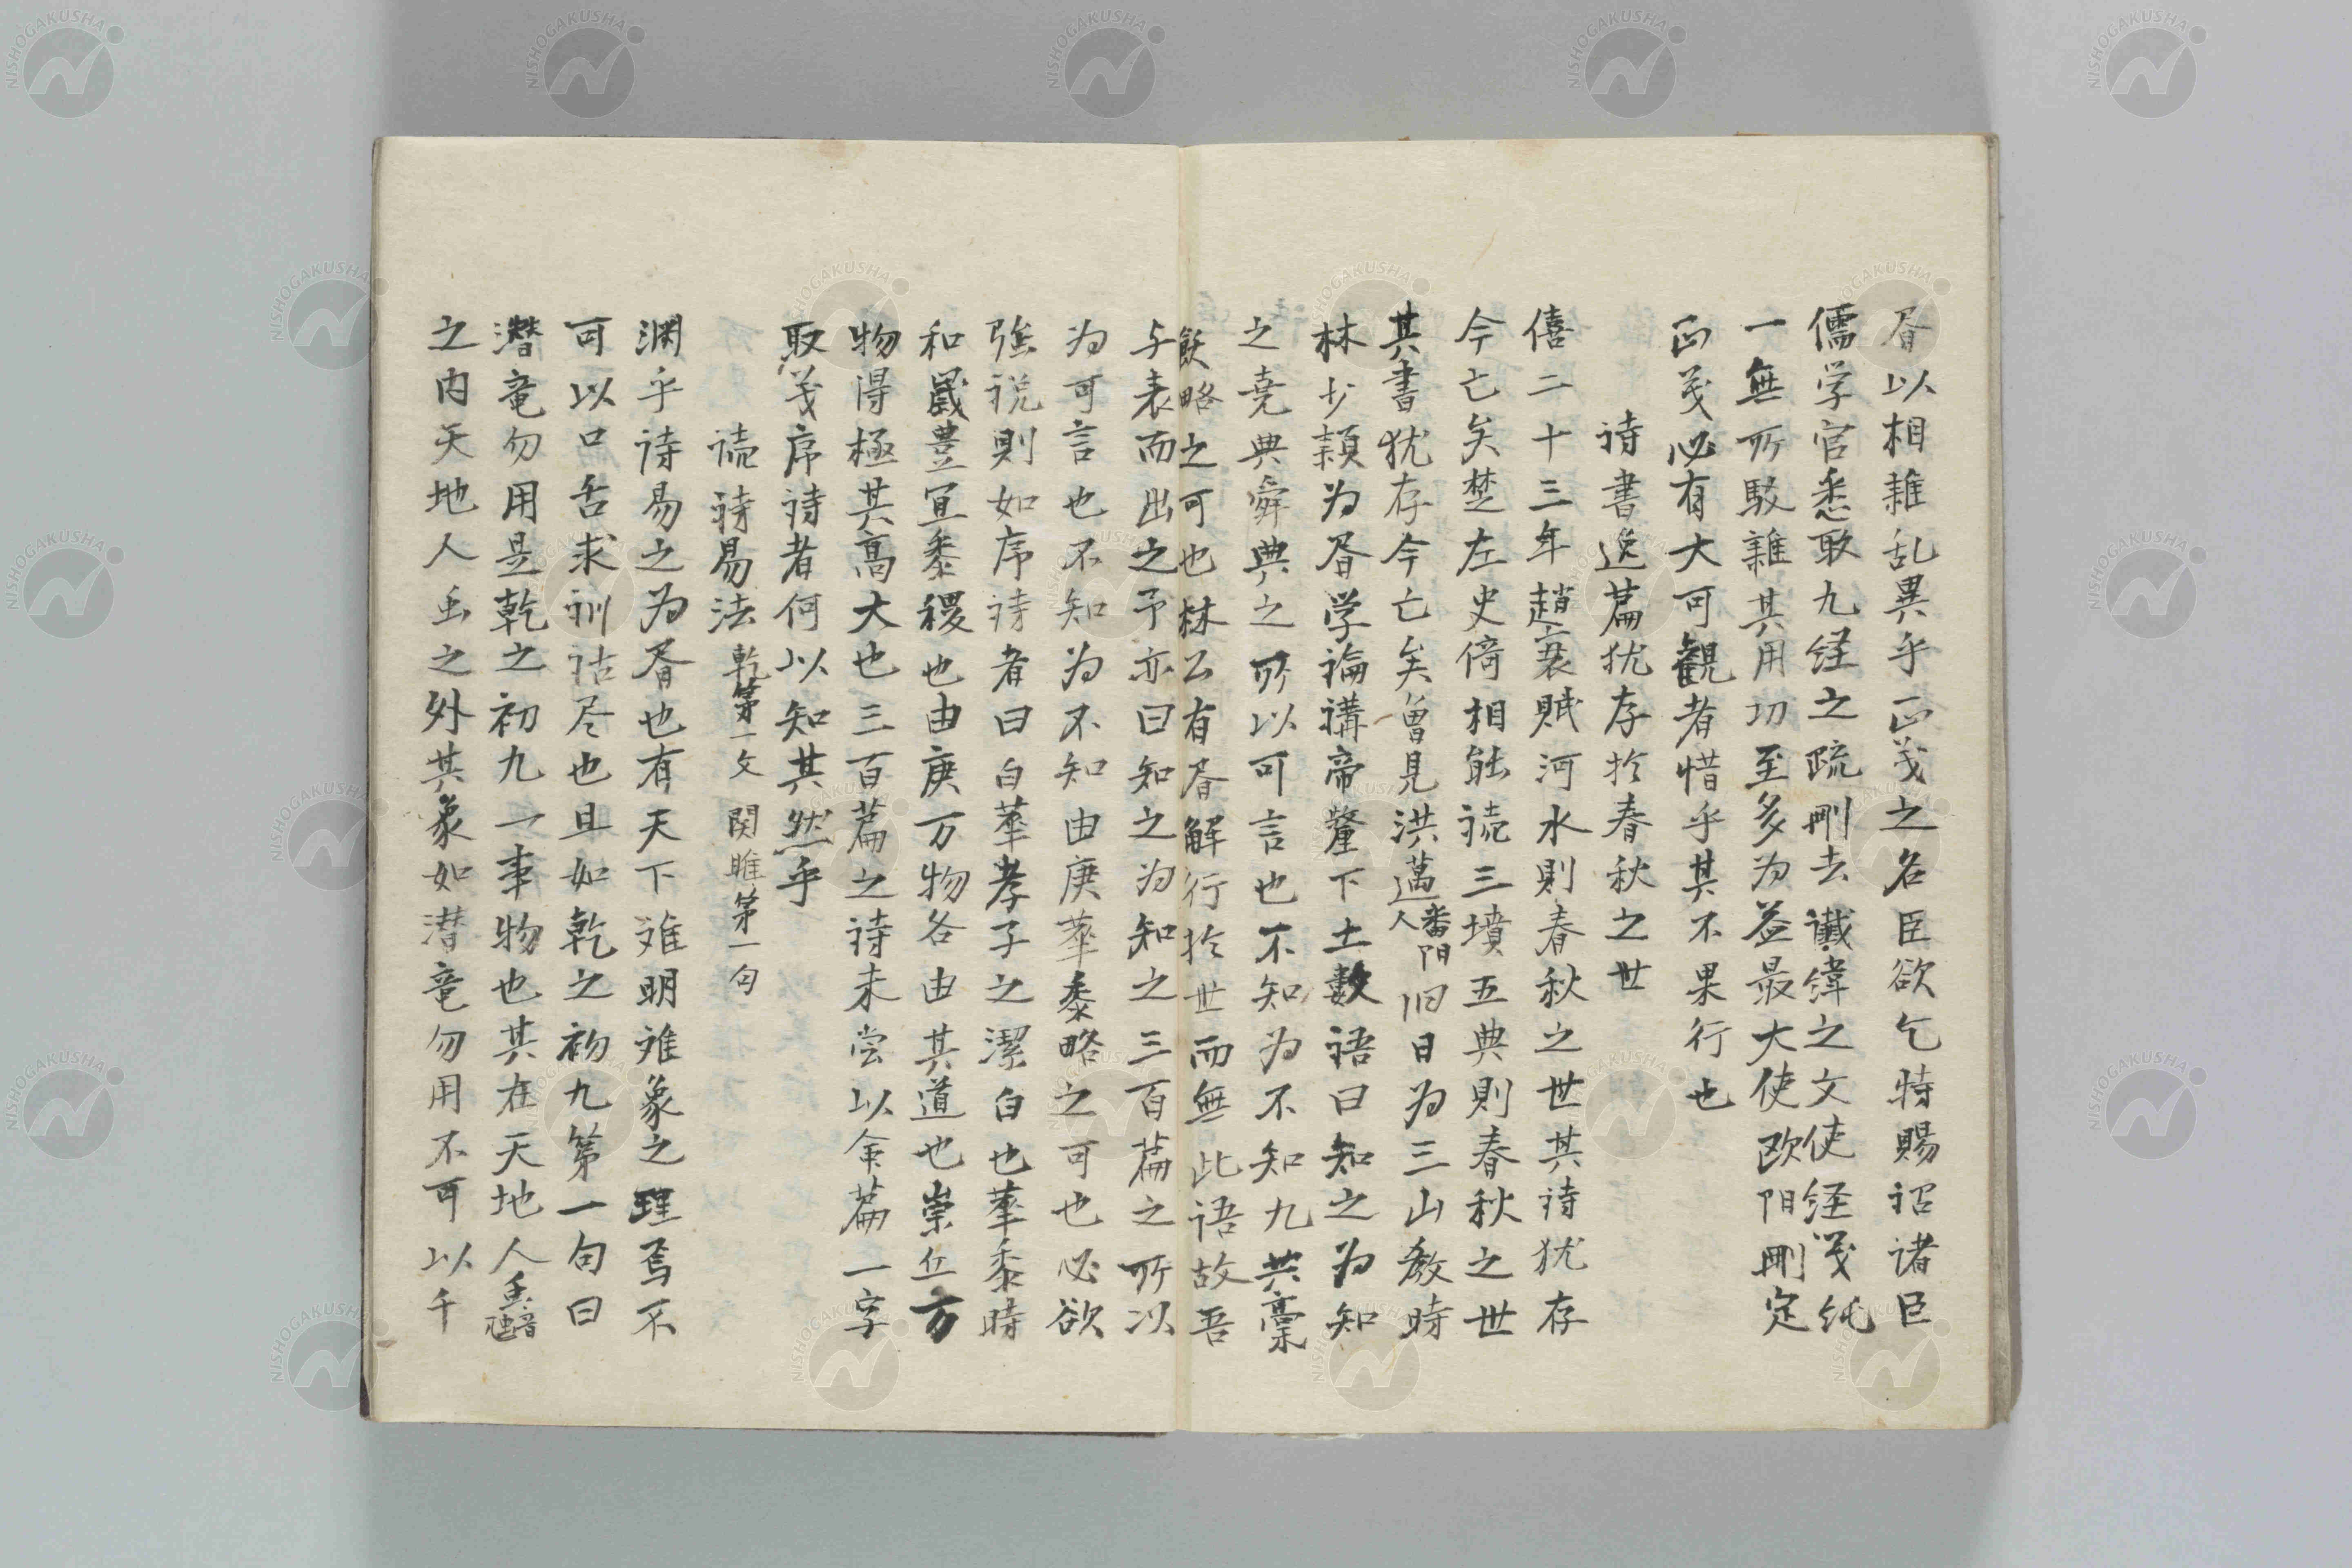 胥以相雜乱異乎正義之名臣欲乞特賜詔諸臣
儒学官悉取九経之疏刪去讖緯之文使経義純
一無所駁雜其用功至多為益最大使欧陽刪定
正義必有大可観者惜乎其不果行也
詩書逸篇犹存於春秋之世
僖二十三年趙衰賦河水則春秋之世其詩犹存
今亡矣楚左史倚相能読三墳五典則春秋之世
其書犹存今亡矣曽見洪邁番阳人旧日為三山教時
林少穎為胥学論講帝釐下土数語曰知之為知
之尭典舜典之所以可言也不知為不知九共稾
飫略之可也林公有胥解行於世而無此語故吾
与表而出之予亦曰知之為知之三百篇之所以
为可言也不知为不知由庚華黍略之可也必欲
強説則如序詩者曰白華孝子之潔白也華黍時
和歳豊宜黍稷也由庚万物各由其道也崇丘万
物得極其高大也三百篇之詩未尝以命篇一字
取義序詩者何以知其然乎
読詩易法 乾第一爻 関雎第一句
渊乎詩易之為胥也有天下难明难象之理焉不
可以口舌求訓詁尽也且如乾之初九第一句曰
潜竜勿用是乾之初九一事物也其在天地人虫
之内天地人虫之外其象如潜竜勿用不可以千